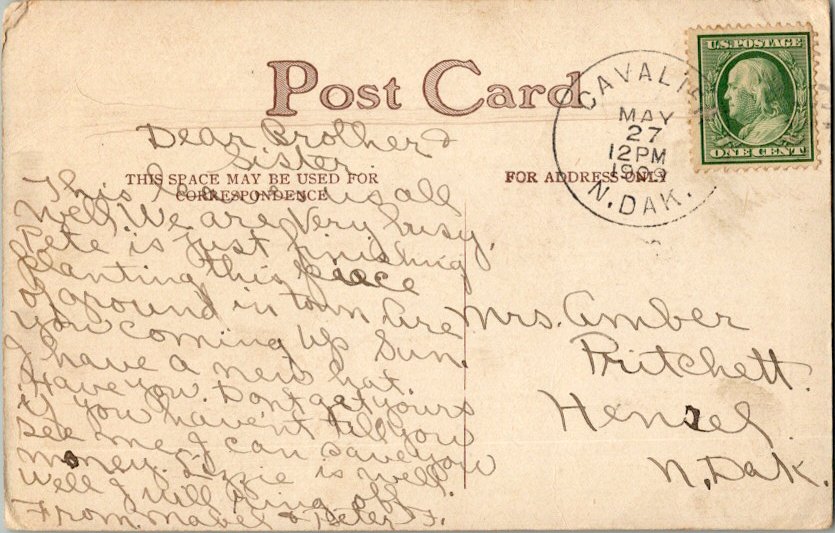 Post Card
Dear Brother &
Sister
THIS SPACE MAY BE USED FOR
CORRESPONDENCE
This leaves us all
Well, We are Very busy,
Pete is just finishing
planting this piece
of ground in town Are
you coming up Sun.
I have a new hat.
Have you. Dont get yours
if you havent till you
see me I can save you
money. Lizzie is well.
Well I will ring off
From Mabel & Peter F.
FOR ADDRESS ONLY
CAVALIER
MAY
27
12PM
1909
N. DAK.
U.S. POSTAGE
ONE CENT
Mrs. Amber
Pritchett.
Hensel.
N. Dak.